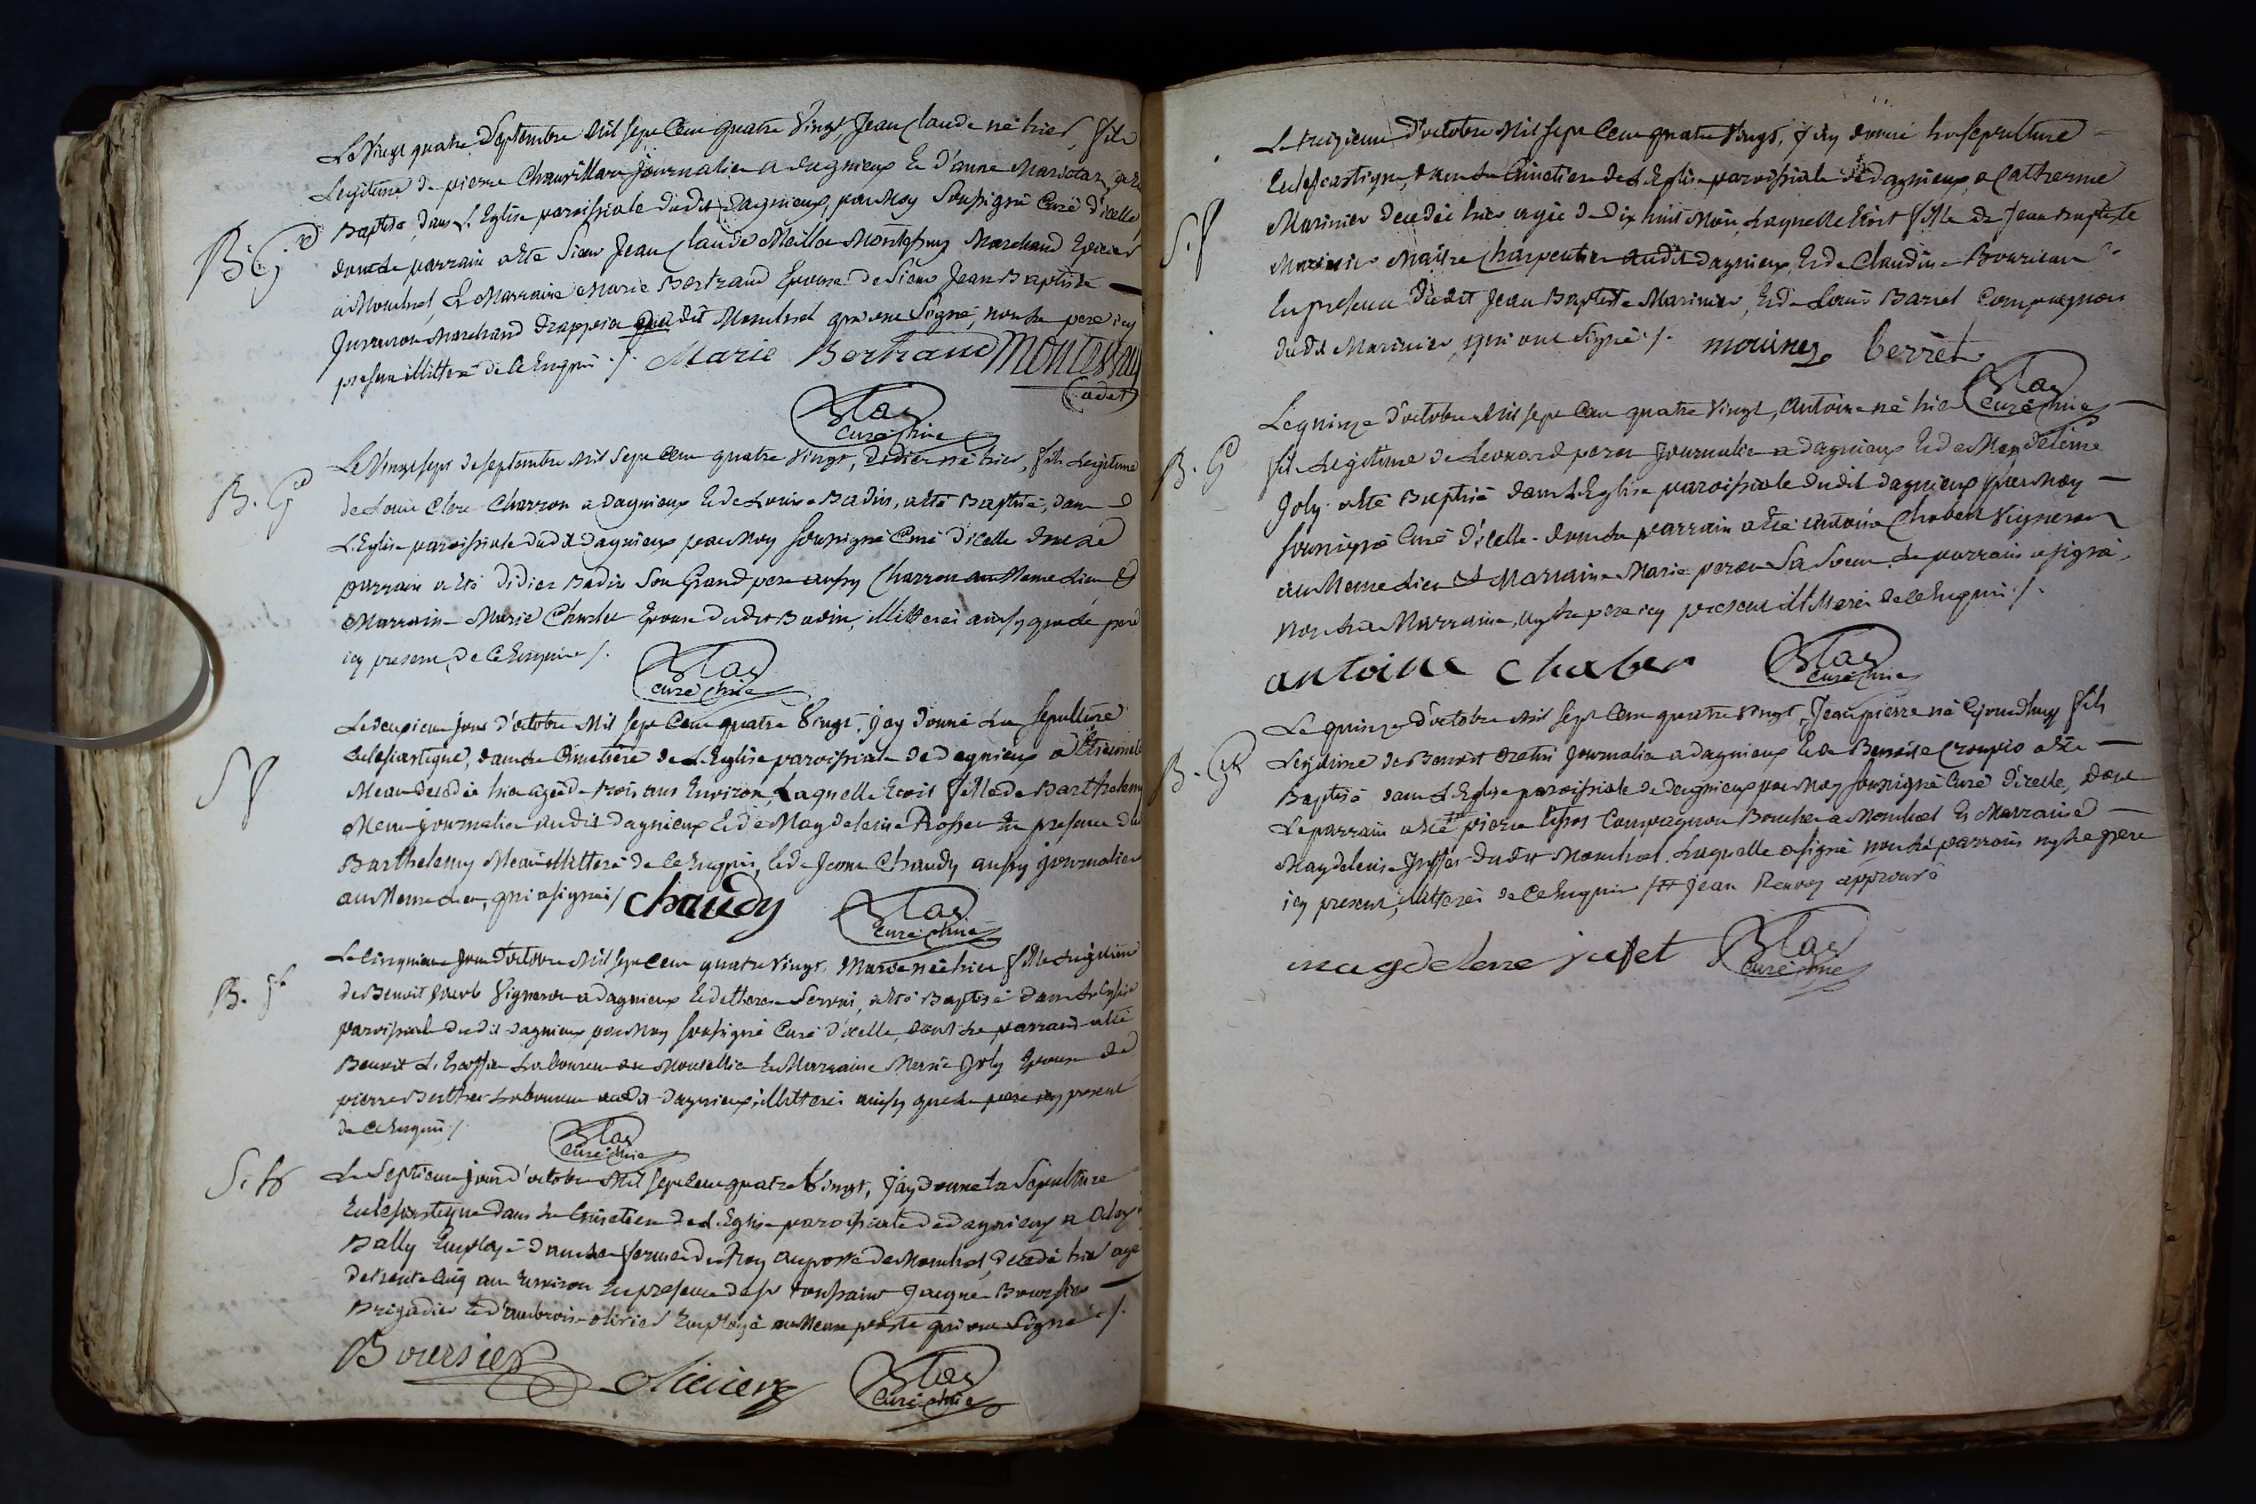 Le Vingt quatre Septembre Mil Sept Cens quatre Vingt, Jean Claude né hier, fils
Legitime de pierre journalier a dagnieux Et d'anne a Eté
B. G.
Baptisé dans L'Eglise paroissiale dudit Dagnieux, par Moy Soussigné Curé d'icelle
dont Le parrain a Eté Sieur Jean Claude Marchand Epicier
a Montluel, Et Marraine Marie Bertrand Epouse de Sieur Jean Baptiste
Marchand Drappier dudit Montluel qui ont Signé, non Le pere icy
present illitteré de Ce Enquis ./. Marie Bertrand Montessuy
Cadet
Curé
Le Vingt sept de septembre Mil Sept Cens quatre Vingt, Didier né hier, fils Legitime
B. G.
de Louis Clere Charron a Dagnieux Et de Louise Badin, a Eté Baptisé, dans
L'Eglise paroissiale dudit Dagnieux par Moy Soussigné Curé d'icelle dont Le
parrain a Eté Didier Badin Son Grand pere aussy Charron au Meme Lieu Et
Marraine Marie Epouse dudit Badin, illitterés ainsy que le pere
icy present, de Ce Enquis ./.
Curé
Le deuxieme jour d'octobre Mil Sept Cens quatre Vingt, j'ay donné La Sepulture
S. f.
Eclesiastique, dans Le Cimetiere de L'Eglise paroissiale de Dagnieux a
Mean decedée hier agée de trois ans Environ, Laquelle Etoit fille de Barthelemy
Mean journalier audit Dagnieux Et de Magdeleine En presence du
Barthelemy Mean illitteré de Ce Enquis, Et de Chaudy aussy journalier
au Meme Lieu, qui a signé ./. Chaudy
Curé
Le Cinquieme jour d'octobre Mil Sept Cens quatre Vingt, Marie née hier fille Legitime
B. f.
de Benoit Vigneron a Dagnieux Et de a Eté Baptisé dans L'Eglise
paroissiale dudit Dagnieux par Moy Soussigné Curé d'icelle, dont Le parrain a Eté
Benoit Laboureur Et Marraine Marie Joly Epouse de
pierre Laboureur audit Dagnieux, illitterés ainsy que Le pere icy present
de Ce Enquis ./.
Curé
S. h.
Le Septieme jour d'octobre Mil Sept Cens quatre Vingt, j'ay donné La Sepulture
Eclesiastique dans Le Cimetiere de L'Eglise paroissiale de Dagnieux a
Bally Employé dans Les fermes du Roy au poste de Montluel, decedé hier agé
de trente Cinq ans Environ En presence de Sr Toussaint Jacques Boursier
Brigadier Et d'ambroise Employé au Meme poste qui ont Signé ./.
Boursier
Curé
Le treizieme d'octobre Mil Sept Cens quatre Vingt, j'ay donné La Sepulture
Eclesiastique, dans Le Cimetiere de L'Eglise paroissiale de Dagnieux, a Catherine
S. f.
Marinier decedée hier agée de Dix huit Mois Laquelle Etoit fille de Jean Baptiste
Marinier Maitre Charpentier audit Dagnieux, Et de Claudine
En presence dudit Jean Baptiste Marinier, Et de Louis Compagnon
dudit Marinier, qui ont Signé ./.
Curé
Le quinze d'octobre Mil Sept Cens quatre Vingt, Antoine né hier
B. G.
fils Legitime de Leonard journalier a Dagnieux Et de Magdeleine
Joly a Eté Baptisé dans L'Eglise paroissiale dudit Dagnieux par Moy
Soussigné Curé d'icelle dont Le parrain a Eté Antoine Chabert Vigneron
au Meme Lieu Et Marraine Marie Sa Soeur Le parrain a signé,
non La Marraine, ny Le pere icy present illitterés de Ce Enquis ./.
antoine chaber
Curé
Le quinze d'octobre Mil Sept Cens quatre Vingt, Jean pierre né Ejourdhuy fils
B. G.
Legitime de Benoit journalier a Dagnieux Et de Benoite a Eté
Baptisé dans L'Eglise paroissiale de Dagnieux par Moy Soussigné Curé d'icelle, dont
Le parrain a Eté pierre Compagnon Boucher a Montluel Et Marraine
Magdeleine dudit Montluel Laquelle a signé non Le parrain ny Le pere
icy present, illitterés de Ce Enquis ./. Jean approuvé
magdelene jufet
Curé